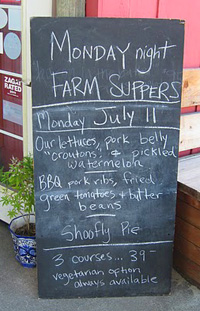 MONDAY night
FARM SUPPERS
Monday July 11
Our lettuces, pork belly
"croutons" & pickled
watermelon
BBQ pork ribs, fried
green tomatoes & butter
beans
Shoofly Pie
3 courses... 39-
vegetarian option
always available
ZAGAT
RATED